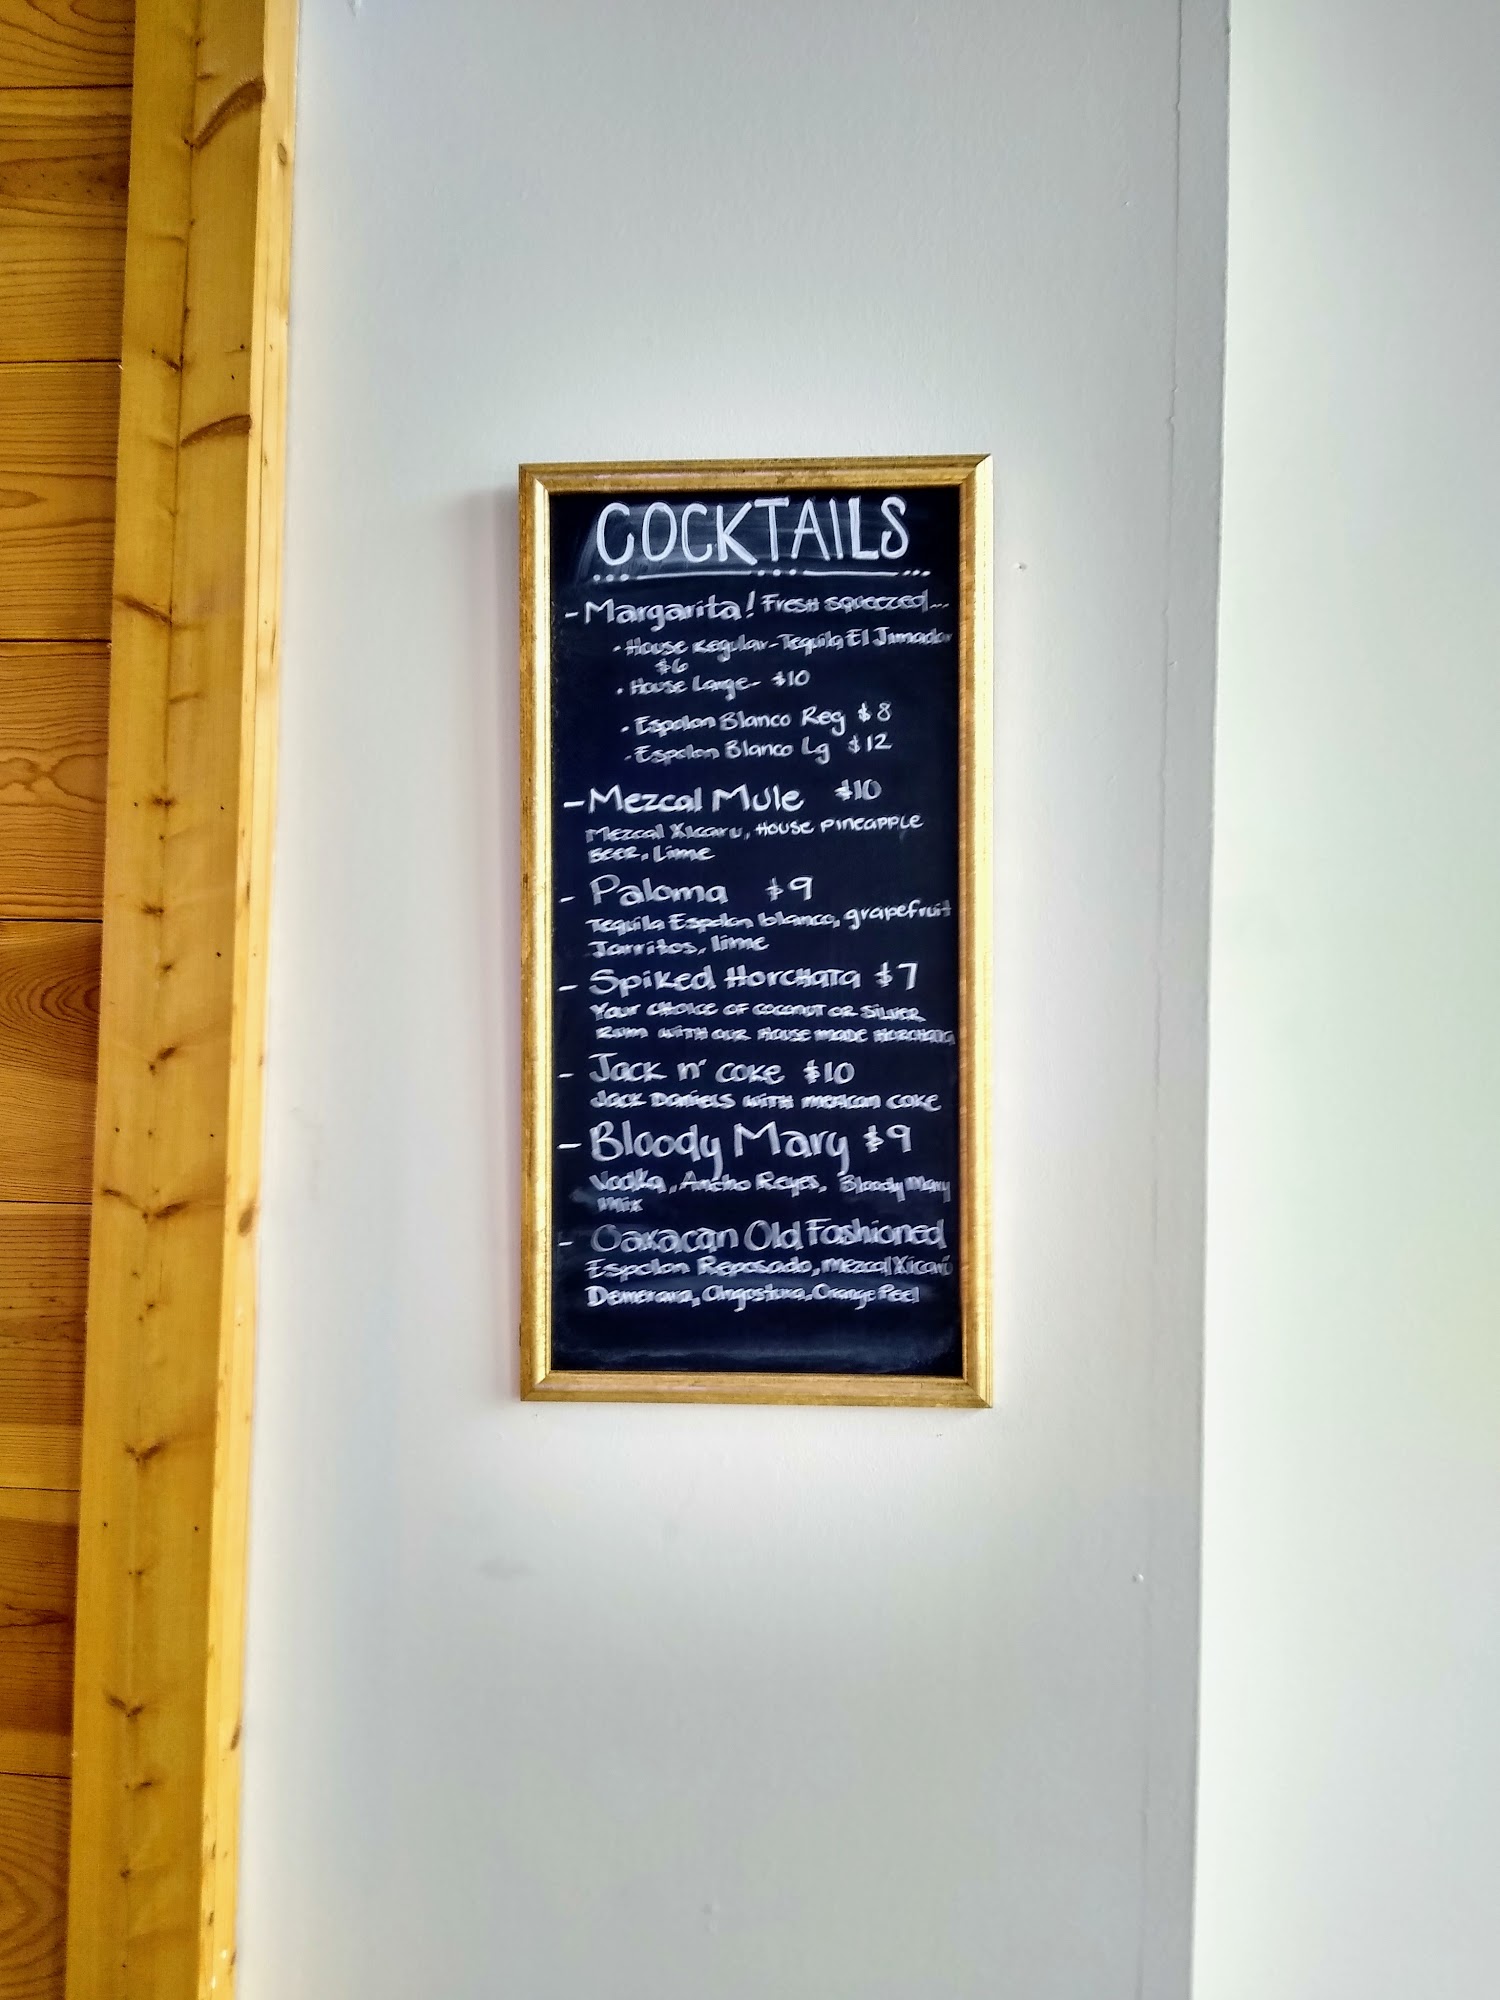 COCKTAILS
- Margarita! Fresh squeezed...
• House Regular - Tequila El Jimador
$6
• House Large - $10
• Espolon Blanco Reg $8
• Espolon Blanco Lg $12
- Mezcal Mule $10
Mezcal Xicaru, House Pineapple
Beer, Lime
- Paloma $9
Tequila Espolon blanco, grapefruit
Jarritos, lime
- Spiked Horchata $7
Your choice of coconut or silver
rum with our house made horchata
- Jack n' coke $10
Jack Daniels with mexican coke
- Bloody Mary $9
Vodka, Ancho Reyes, Bloody Mary
Mix
- Oaxacan Old Fashioned
Espolon Reposado, Mezcal Xicarú
Demerara, Angostura, Orange Peel